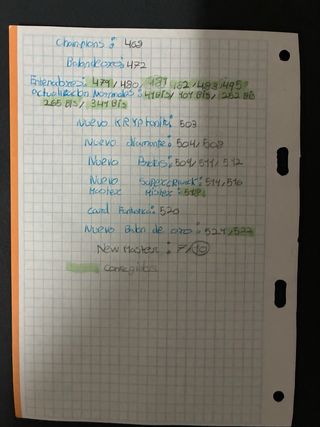 Champions: 469
Balondeoros: 472
Entrenadores: 479/480/481/482/483/495
Actualización Normales: 41Bis/107Bis/252Bis
265Bis/347Bis
Nuevo KRYptonita: 503
Nuevo diamante: 504/508
Nuevo Protas: 509/511/512
Nuevo Supercrack: 514/516
Master Máster: 518
Card Fantástica: 520
Nuevo Balon de oro: 521/522
New Master: 7/10
Conseguidas